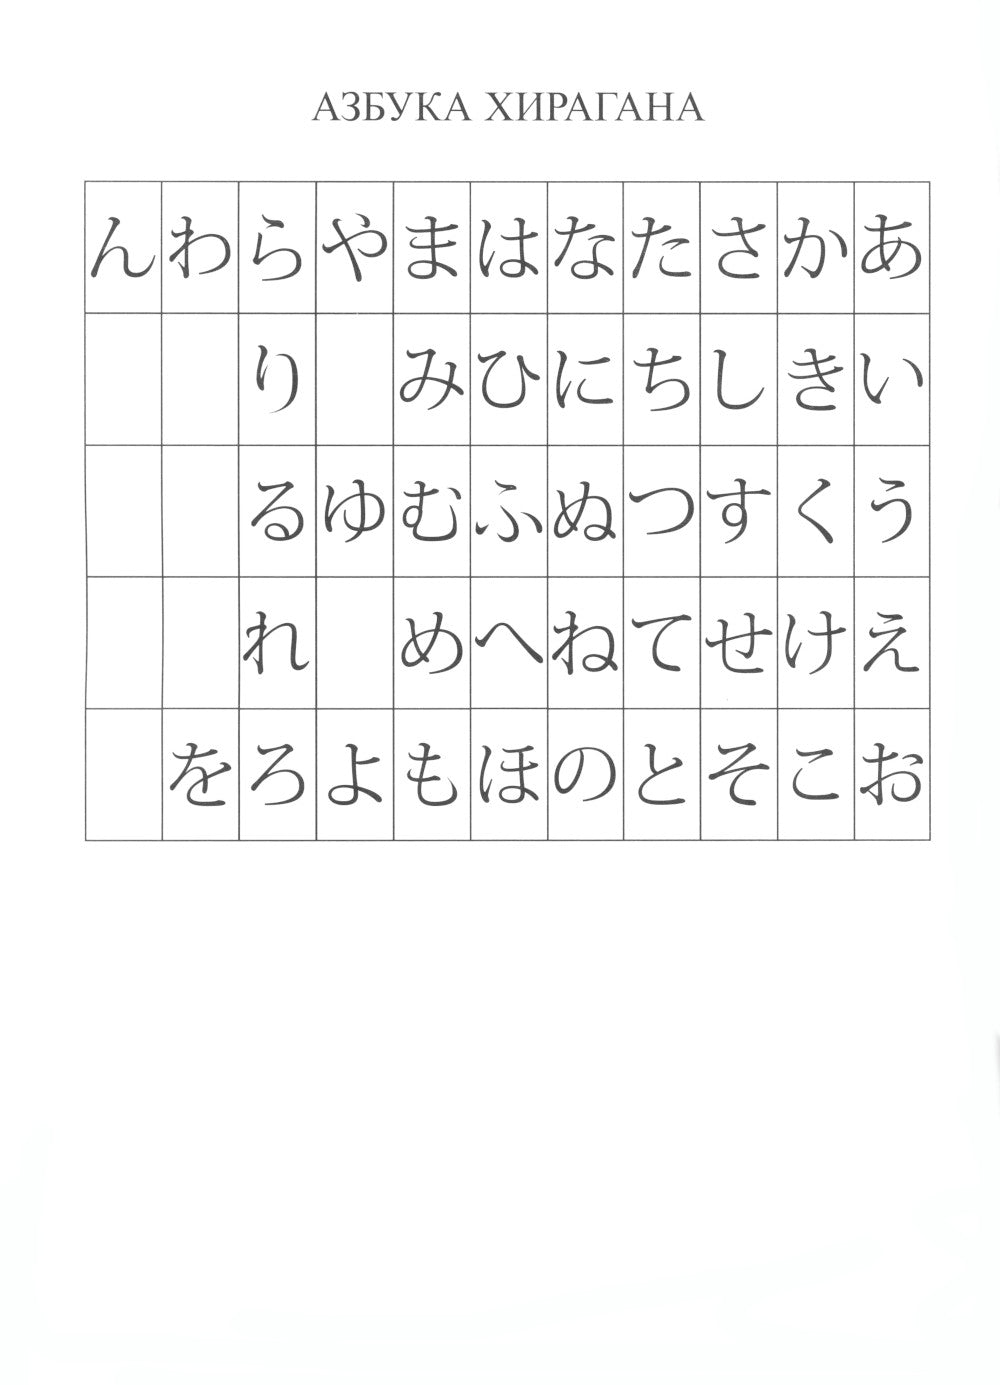 АЗБУКА ХИРАГАНА
ん わ ら や ま は な た さ か あ
り み ひ に ち し き い
る ゆ む ふ ぬ つ す く う
れ め へ ね て せ け え
を ろ よ も ほ の と そ こ お